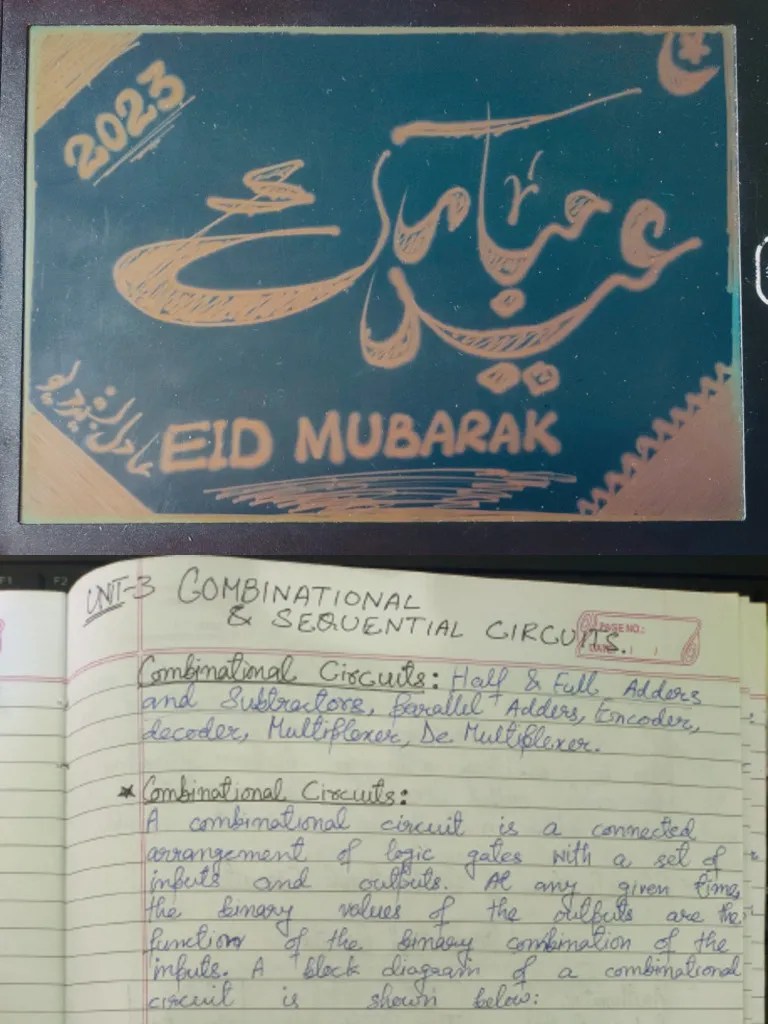 2023
عید مبارک
EID MUBARAK
F1
F2
UNIT-3 COMBINATIONAL
& SEQUENTIAL CIRCUITS.
PAGE NO.:
DATE: / /
Combinational Circuits: Half & Full Adders
and Subtractors, Parallel Adders, Encoder,
decoder, Multiplexer, De Multiplexer.
* Combinational Circuits:
A combinational circuit is a connected
arrangement of logic gates with a set of
inputs and outputs. At any given time,
the binary values of the outputs are the
function of the binary combination of the
inputs. A block diagram of a combinational
circuit is shown below: